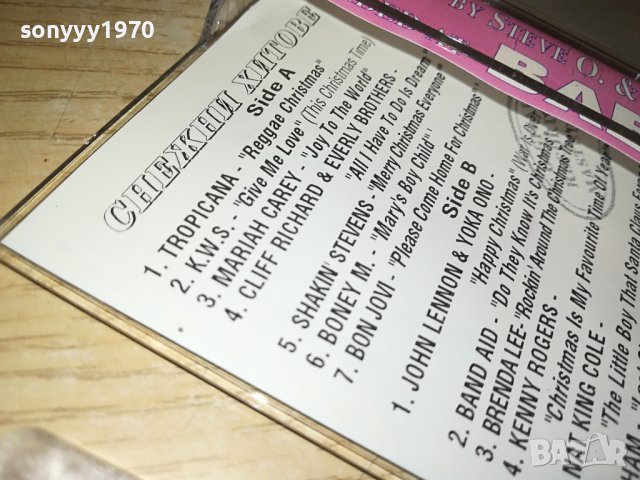 sonyyy1970
BY STEVE O. &
СНЕЖНИ ХИТОВЕ
Side A
1. TROPICANA - "Reggae Christmas"
2. K.W.S. - "Give Me Love" (This Christmas Time)
3. MARIAH CAREY - "Joy To The World"
4. CLIFF RICHARD & EVERLY BROTHERS -
"All I Have To Do Is Dream"
5. SHAKIN' STEVENS - "Merry Christmas Everyone"
6. BONEY M. - "Mary's Boy Child"
7. BON JOVI - "Please Come Home For Christmas"
Side B
1. JOHN LENNON & YOKA ONO -
"Happy Christmas" (War Is Over)
2. BAND AID - "Do They Know It's Christmas
3. BRENDA LEE - "Rockin' Around The Christmas Tree"
4. KENNY ROGERS -
"Christmas Is My Favourite Time Of
KING COLE -
"The Little Boy That Santa
BAZAR